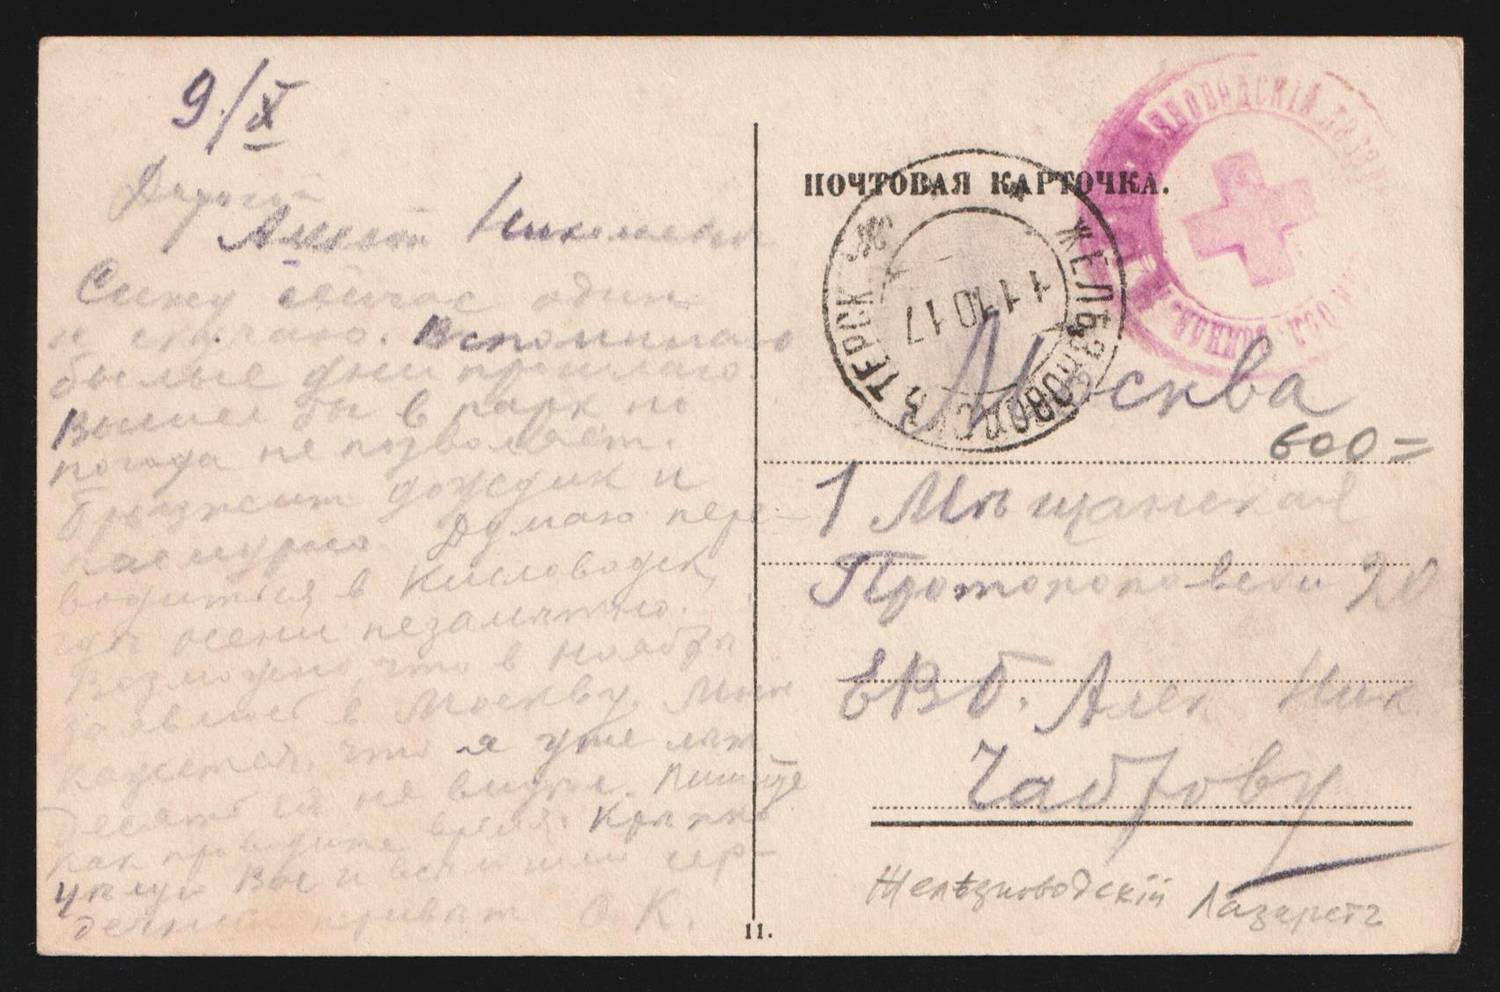 9/X
Дорогой
Алексей Николаевич
Сижу сейчас один
и скучаю. Вспоминаю
былые дни прошлаго.
Вышел бы в парк но
погода не позволяет.
Брызжит дождик и
пасмурно. Думаю пере-
водиться в Кисловодск,
там осени незаметно.
Возможно, что в ноябре
в Москву. Мне
кажется, что я уже лет
десять ея не видел. Пишите
как проводите время. Крепко
целую Вас и всем шлю сер-
дечный привет О. К.
11.
ПОЧТОВАЯ КАРТОЧКА.
ЖЕЛѢЗНОВОДСКЪ ТЕРСК.
11 10 17
Москва
600=
1 Мѣщанская
Протопоповский 20
ЕВБ. Алек Ник
Чаброву
Желѣзноводскій Лазаретъ